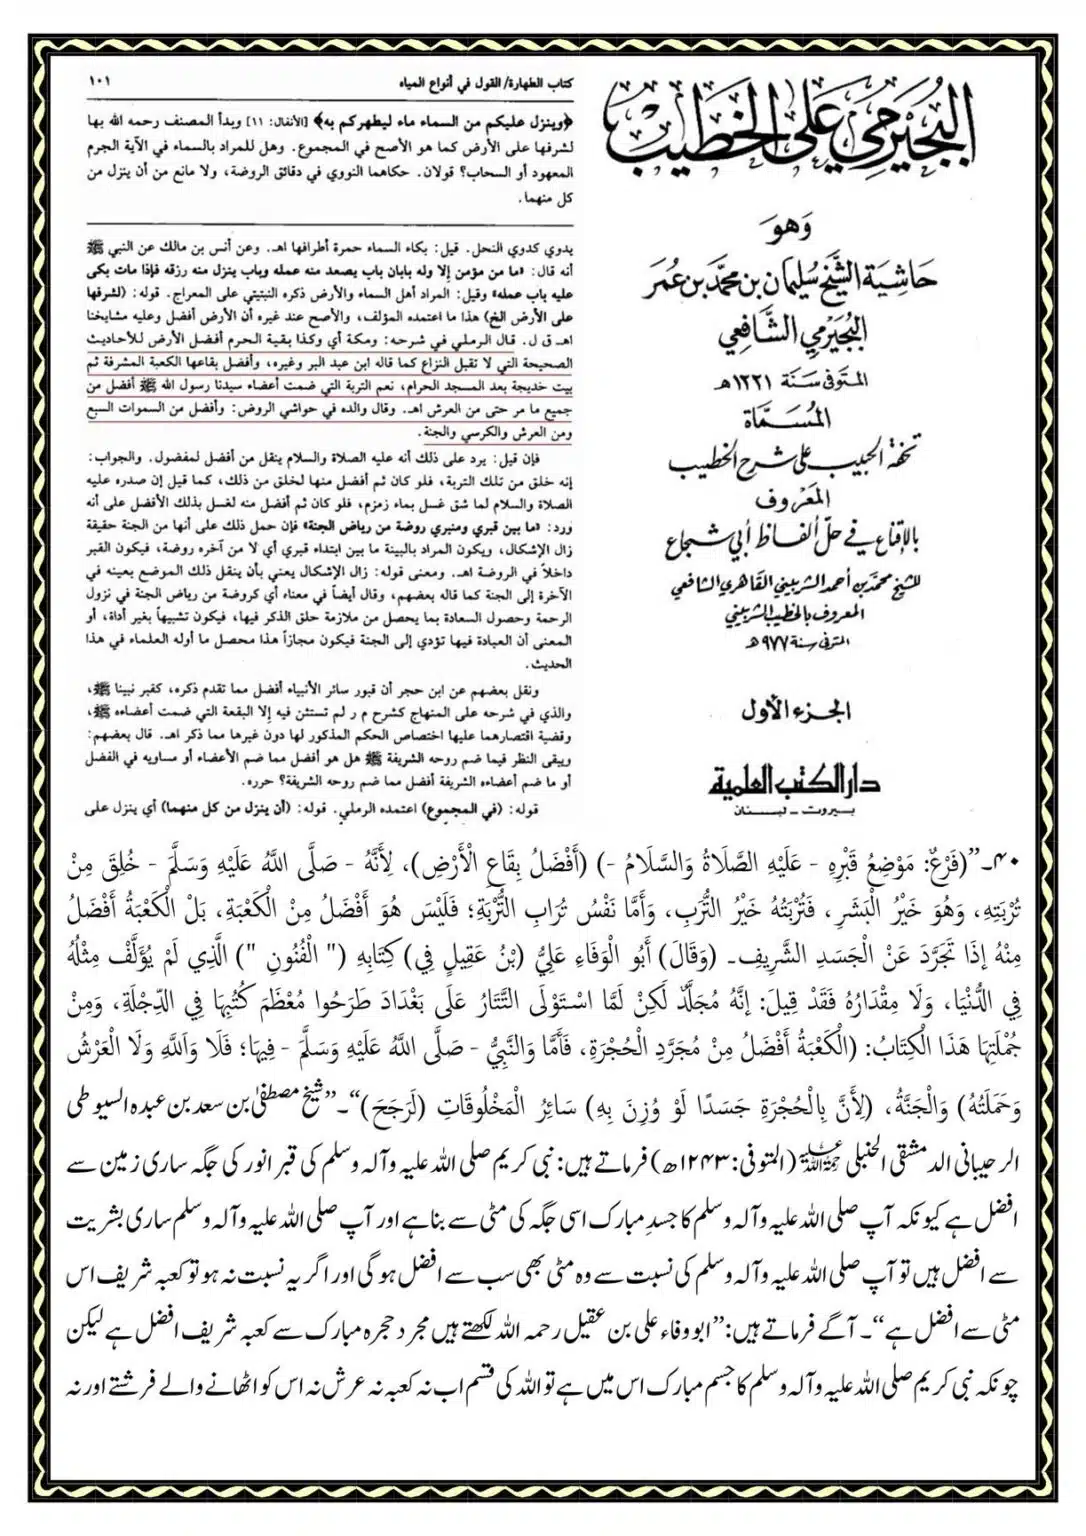 البجيرمي على الخطيب
وهو
حاشية الشيخ سليمان بن محمد بن عمر
البجيرمي الشافعي
المتوفى سنة ١٢٢١هـ
المسماة
تحفة الحبيب على شرح الخطيب
المعروف
بالإقناع في حل ألفاظ أبي شجاع
للشيخ محمد بن أحمد الشربيني القاهري الشافعي
المعروف بالخطيب الشربيني
المتوفى سنة ٩٧٧هـ
الجزء الأول
دار الكتب العلمية
بيروت - لبنان
كتاب الطهارة/ القول في أنواع المياه ١٠١
﴿وينزل عليكم من السماء ماء ليطهركم به﴾ [الأنفال: ١١] وبدأ المصنف رحمه الله بها
لشرفها على الأرض كما هو الأصح في المجموع. وهل للمراد بالسماء في الآية الجرم
المعهود أو السحاب؟ قولان. حكاهما النووي في دقائق الروضة، ولا مانع من أن ينزل من
كل منهما.
يدوي كدوي النحل. قيل: بكاء السماء حمرة أطرافها اهـ. وعن أنس بن مالك عن النبي ﷺ
أنه قال: «ما من مؤمن إلا وله بابان باب يصعد منه عمله وباب ينزل منه رزقه فإذا مات بكى
عليه باب عمله» وقيل: المراد أهل السماء والأرض ذكره النبتيتي على المعراج. قوله: (لشرفها
على الأرض الخ) هذا ما اعتمده المؤلف، والأصح عند غيره أن الأرض أفضل وعليه مشايخنا
اهـ ق ل. قال الرملي في شرحه: ومكة أي وكذا بقية الحرم أفضل الأرض للأحاديث
الصحيحة التي لا تقبل النزاع كما قاله ابن عبد البر وغيره، وأفضل بقاعها الكعبة المشرفة ثم
بيت خديجة بعد المسجد الحرام، نعم التربة التي ضمت أعضاء سيدنا رسول الله ﷺ أفضل من
جميع ما مر حتى من العرش اهـ. وقال والده في حواشي الروض: وأفضل من السموات السبع
ومن العرش والكرسي والجنة.
فإن قيل: يرد على ذلك أنه عليه الصلاة والسلام ينقل من أفضل لمفضول. والجواب:
إنه خلق من تلك التربة، فلو كان ثم أفضل منها لخلق من ذلك، كما قيل إن صدره عليه
الصلاة والسلام لما شق غسل بماء زمزم، فلو كان ثم أفضل منه لغسل بذلك الأفضل على أنه
ورد: «ما بين قبري ومنبري روضة من رياض الجنة» فإن حمل ذلك على أنها من الجنة حقيقة
زال الإشكال، ويكون المراد بالبينة ما بين ابتداء قبري أي لا من آخره روضة، فيكون القبر
داخلاً في الروضة اهـ. ومعنى قوله: زال الإشكال يعني بأن ينقل ذلك الموضع بعينه في
الآخرة إلى الجنة كما قاله بعضهم، وقال أيضاً في معناه أي كروضة من رياض الجنة في نزول
الرحمة وحصول السعادة بما يحصل من ملازمة حلق الذكر فيها، فيكون تشبيهاً بغير أداة، أو
المعنى أن العبادة فيها تؤدي إلى الجنة فيكون مجازاً هذا محصل ما أوله العلماء في هذا
الحديث.
ونقل بعضهم عن ابن حجر أن قبور سائر الأنبياء أفضل مما تقدم ذكره، كقبر نبينا ﷺ،
والذي في شرحه على المنهاج كشرح م ر لم تستثن فيه إلا البقعة التي ضمت أعضاءه ﷺ،
وقضية اقتصارهما عليها اختصاص الحكم المذكور لها دون غيرها مما ذكر اهـ. قال بعضهم:
ويبقى النظر فيما ضم روحه الشريفة ﷺ هل هو أفضل مما ضم الأعضاء أو مساويه في الفضل
أو ما ضم أعضاءه الشريفة أفضل مما ضم روحه الشريفة؟ حرره.
قوله: (في المجموع) اعتمده الرملي. قوله: (أن ينزل من كل منهما) أي ينزل على
۴۰۔ ”(فَرْعٌ: مَوْضِعُ قَبْرِهِ - عَلَيْهِ الصَّلَاةُ وَالسَّلَامُ -) (أَفْضَلُ بِقَاعِ الْأَرْضِ)، لِأَنَّهُ - صَلَّى اللَّهُ عَلَيْهِ وَسَلَّمَ - خُلِقَ مِنْ
تُرْبَتِهِ، وَهُوَ خَيْرُ الْبَشَرِ، فَتُرْبَتُهُ خَيْرُ التُّرَبِ، وَأَمَّا نَفْسُ تُرَابِ التُّرْبَةِ؛ فَلَيْسَ هُوَ أَفْضَلُ مِنْ الْكَعْبَةِ، بَلْ الْكَعْبَةُ أَفْضَلُ
مِنْهُ إذَا تَجَرَّدَ عَنْ الْجَسَدِ الشَّرِيفِ۔ (وَقَالَ) أَبُو الْوَفَاءِ عَلِيُّ (بْنُ عَقِيلٍ فِي) كِتَابِهِ (" الْفُنُونِ ") الَّذِي لَمْ يُؤَلَّفْ مِثْلُهُ
فِي الدُّنْيَا، وَلَا مِقْدَارُهُ فَقَدْ قِيلَ: إنَّهُ مُجَلَّدٌ لَكِنْ لَمَّا اسْتَوْلَى التَّتَارُ عَلَى بَغْدَادَ طَرَحُوا مُعْظَمَ كُتُبِهَا فِي الدِّجْلَةِ، وَمِنْ
جُمْلَتِهَا هَذَا الْكِتَابُ: (الْكَعْبَةُ أَفْضَلُ مِنْ مُجَرَّدِ الْحُجْرَةِ، فَأَمَّا وَالنَّبِيُّ - صَلَّى اللَّهُ عَلَيْهِ وَسَلَّمَ - فِيهَا؛ فَلَا وَاَللَّهِ وَلَا الْعَرْشُ
وَحَمَلَتُهُ) وَالْجَنَّةُ، (لِأَنَّ بِالْحُجْرَةِ جَسَدًا لَوْ وُزِنَ بِهِ) سَائِرُ الْمَخْلُوقَاتِ (لَرَجَحَ)“۔ ”شیخ مصطفیٰ بن سعد بن عبده السیوطی
الرحیبانی الدمشقی الحنبلی رحمۃ اللہ علیہ (المتوفی: ۱۲۴۳ھ) فرماتے ہیں: نبی کریم صلی اللہ علیہ وآلہ وسلم کی قبر انور کی جگہ ساری زمین سے
افضل ہے کیونکہ آپ صلی اللہ علیہ وآلہ وسلم کا جسدِ مبارک اسی جگہ کی مٹی سے بنا ہے اور آپ صلی اللہ علیہ وآلہ وسلم ساری بشریت
سے افضل ہیں تو آپ صلی اللہ علیہ وآلہ وسلم کی نسبت سے وہ مٹی بھی سب سے افضل ہو گی اور اگر یہ نسبت نہ ہو تو کعبہ شریف اس
مٹی سے افضل ہے“۔ آگے فرماتے ہیں: ”ابو وفاء علی بن عقیل رحمہ اللہ لکھتے ہیں مجرد حجرہ مبارک سے کعبہ شریف افضل ہے لیکن
چونکہ نبی کریم صلی اللہ علیہ وآلہ وسلم کا جسم مبارک اس میں ہے تو اللہ کی قسم اب نہ کعبہ نہ عرش نہ اس کو اٹھانے والے فرشتے اور نہ